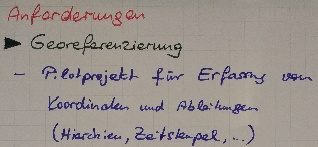 Anforderungen
► Georeferenzierung
- Pilotprojekt für Erfassung von
Koordinaten und Ableitungen
(Hierarchien, Zeitstempel, ...)